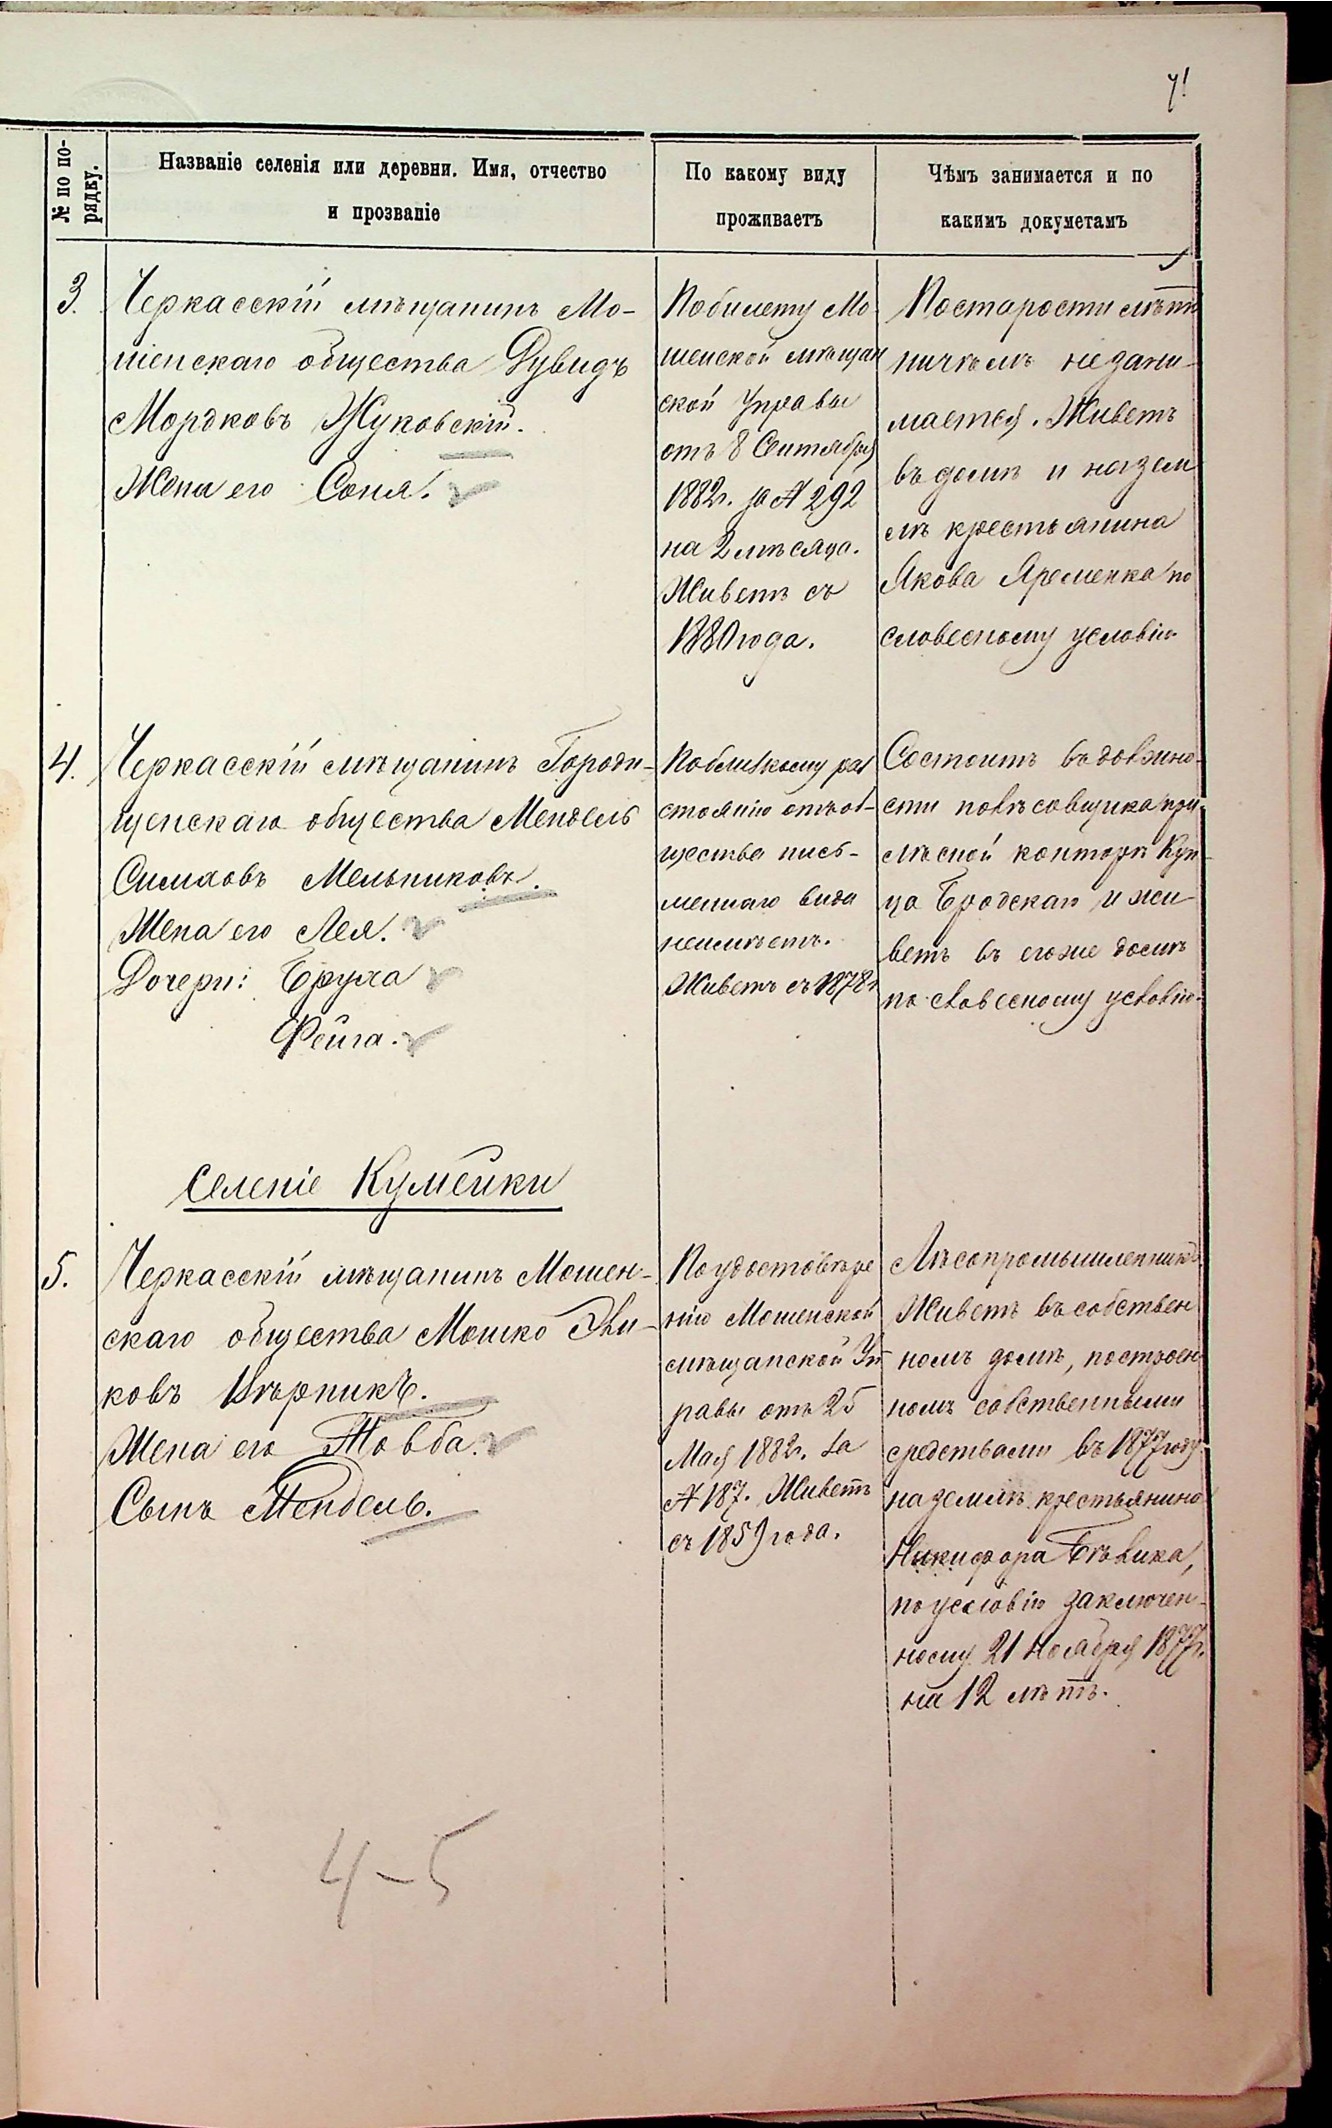 71
№ по по-
рядку.
Названіе селенія или деревни. Имя, отчество
и прозваніе
По какому виду
проживаетъ
Чѣмъ занимается и по
какимъ докуметамъ
3.
Черкасскій мѣщанинъ Мо-
шенскаго общества Дувидъ
Мордковъ Жуковскій.
Жена его Соня.
По билету Мо
шенской мѣщан
ской Управы
отъ 8 Сентября
1882г. за № 292
на 2 мѣсяца.
Живетъ съ
1880 года.
По старости лѣтъ
ничѣмъ не зани-
мается. Живетъ
въ домѣ и на зем
лѣ крестьянина
Якова Яременка по
словесному условію
4.
Черкасскій мѣщанинъ Городи-
щенскаго общества Мендель
Симховъ Мельниковъ.
Жена его Лея.
Дочери: Бруха
Фейга.
По близкому раз
стоянію отъ об-
щества пись-
меннаго вида
неимѣетъ.
Живетъ съ 1878г
Состоитъ въ должно-
сти повѣсовщика при
лѣсной конторѣ Куп-
ца Бродскаго и жи-
ветъ въ его же домѣ
по словесному условію.
Селеніе Кумейки
5.
Черкасскій мѣщанинъ Мошен-
скаго общества Мошко
ковъ
Жена его Товба.
Сынъ Мендель.
По удостовѣре
нію Мошенской
мѣщанской Уп
равы отъ 25
Мая 1882г. за
№ 187. Живетъ
съ 1859 года.
Лѣсопромышленникъ.
Живетъ въ собствен
номъ домѣ, построен
номъ собственными
средствами въ 1877 году
на землѣ крестьянина
Никифора Бѣлика,
по условію заключен-
ному 21 Ноября 1877г.
на 12 лѣтъ.
4-5